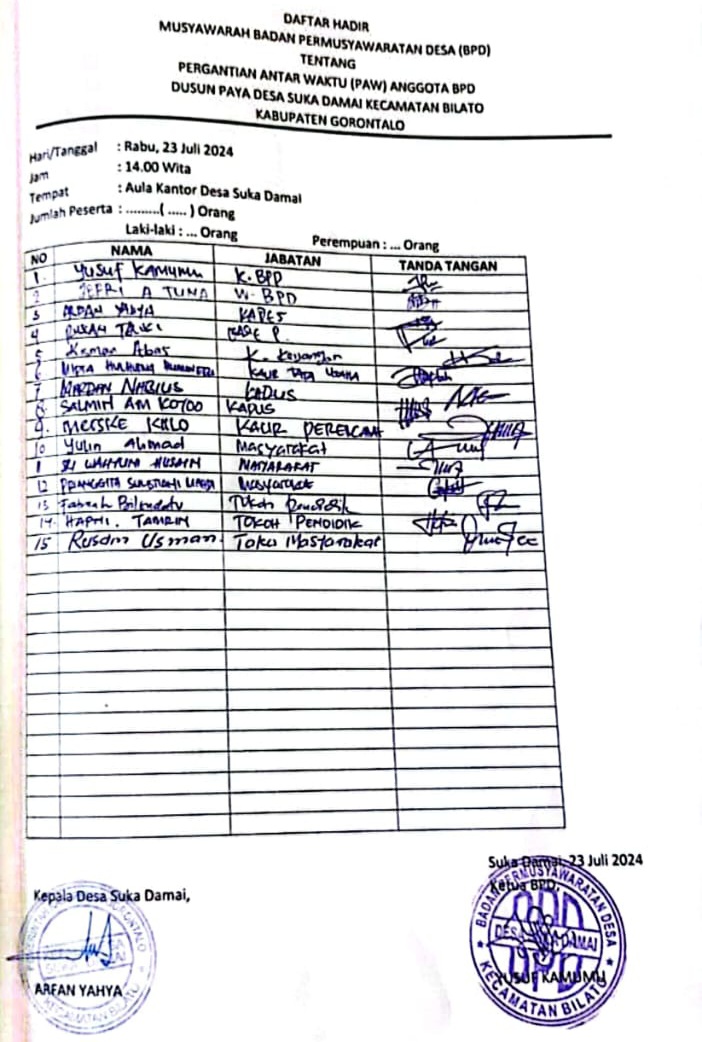 DAFTAR HADIR
MUSYAWARAH BADAN PERMUSYAWARATAN DESA (BPD)
TENTANG
PERGANTIAN ANTAR WAKTU (PAW) ANGGOTA BPD
DUSUN PAYA DESA SUKA DAMAI KECAMATAN BILATO
KABUPATEN GORONTALO
Hari/Tanggal : Rabu, 23 Juli 2024
Jam : 14.00 Wita
Tempat : Aula Kantor Desa Suka Damai
Jumlah Peserta : .........( ..... ) Orang
Laki-laki : ... Orang Perempuan : ... Orang
NO NAMA JABATAN TANDA TANGAN
1. Yusuf KAMUMU K. BPD
2 JEFRI A TUNA W. BPD
3 YAHYA KADES
4
5 Abas K. Keuangan
6 KAUR TATA USAHA
7 MARDAN NABIUS KADUS
8. SALMIN AM KOTOO KADUS
9. MEISKE KALO KAUR
10 Yulin Ahmad Masyarakat
1 SRI WAHYUNI HUSAIN MASYARAKAT
12 Masyarakat
13 Tokoh
14. HAPNI. TAMRIN TOKOH PENDIDIK
15 Rusdin Usman Toko Masyarakat
Suka Damai, 23 Juli 2024
Kepala Desa Suka Damai, Ketua BPD,
BADAN PERMUSYAWARATAN DESA
BPD
DESA SUKA DAMAI
ARFAN YAHYA YUSUF KAMUMU
KECAMATAN BILATO